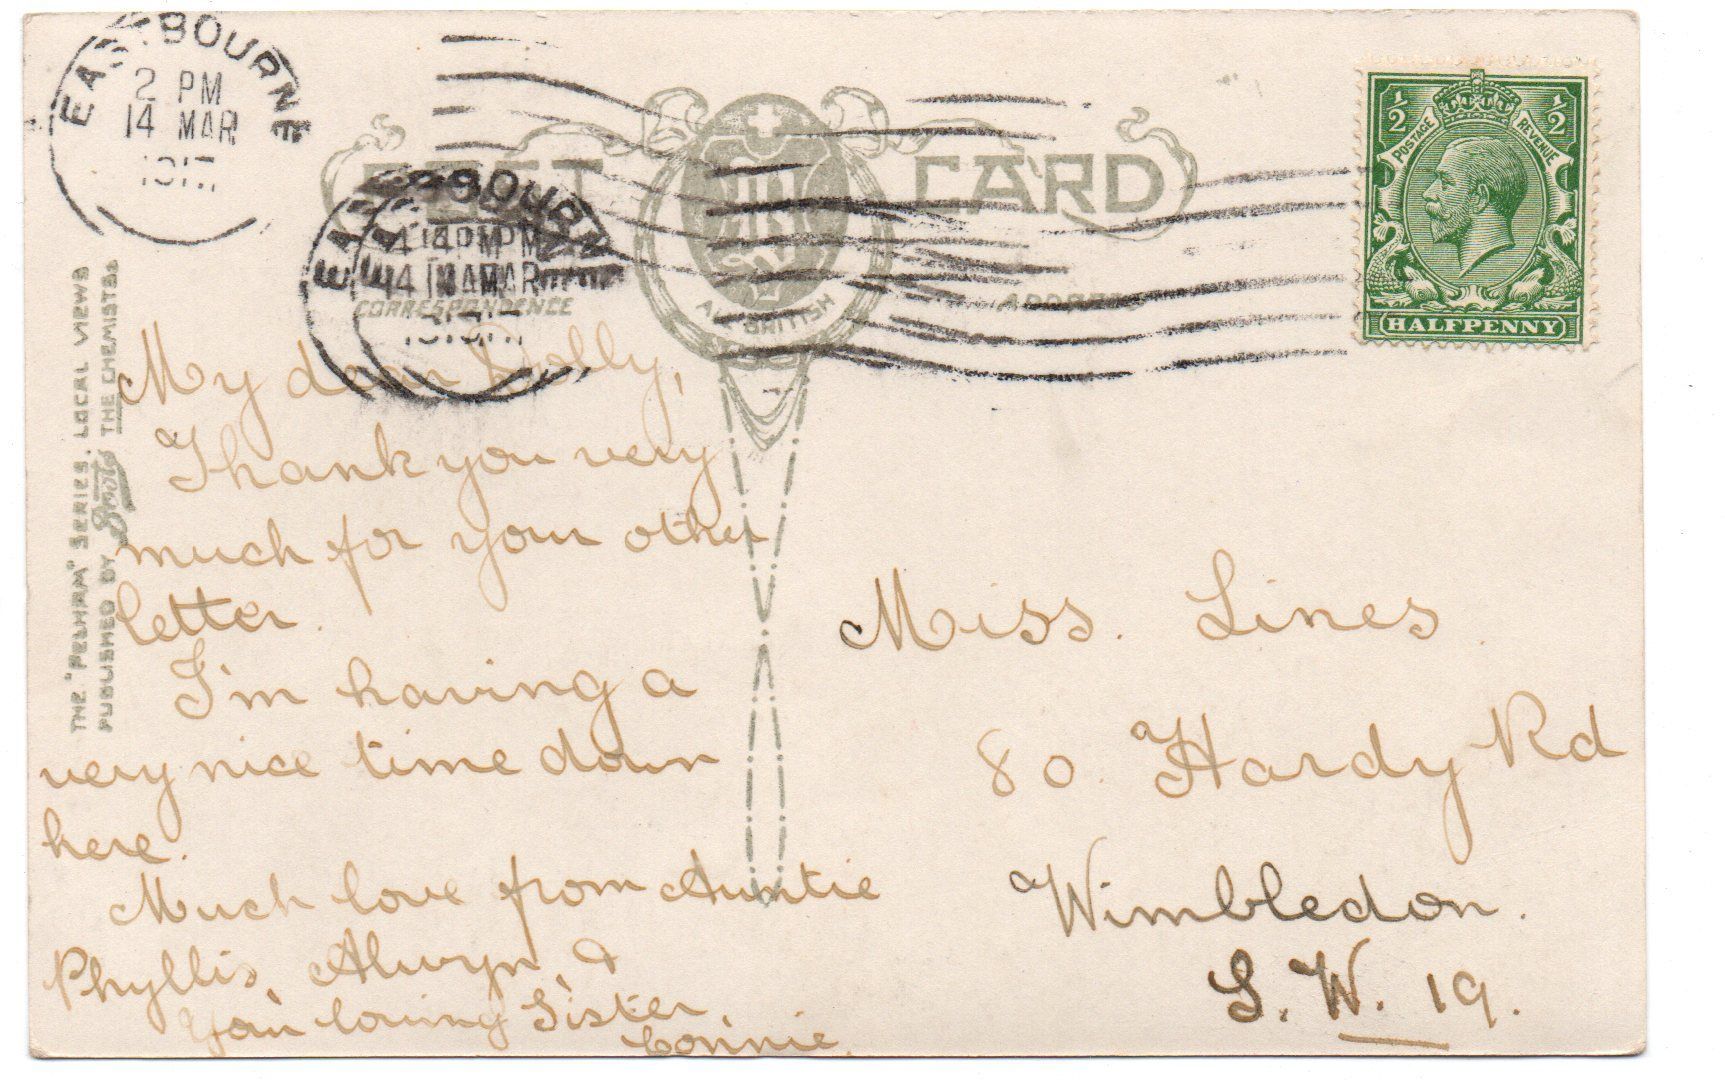 EASTBOURNE
2 PM
14 MAR
POST CARD
EASTBOURNE
14 MAR
CORRESPONDENCE
ADDRESS
½ ½
POSTAGE REVENUE
HALFPENNY
THE "PELHAM" SERIES. LOCAL VIEWS
PUBLISHED BY Boots THE CHEMISTS.
My dear Dolly,
Thank you very
much for your other
letter.
I'm having a
very nice time down
here.
Much love from Auntie
Phyllis, Alwyn, &
Your loving Sister,
Connie.
Miss. Lines.
80. Hardy Rd
Wimbledon.
S. W. 19.